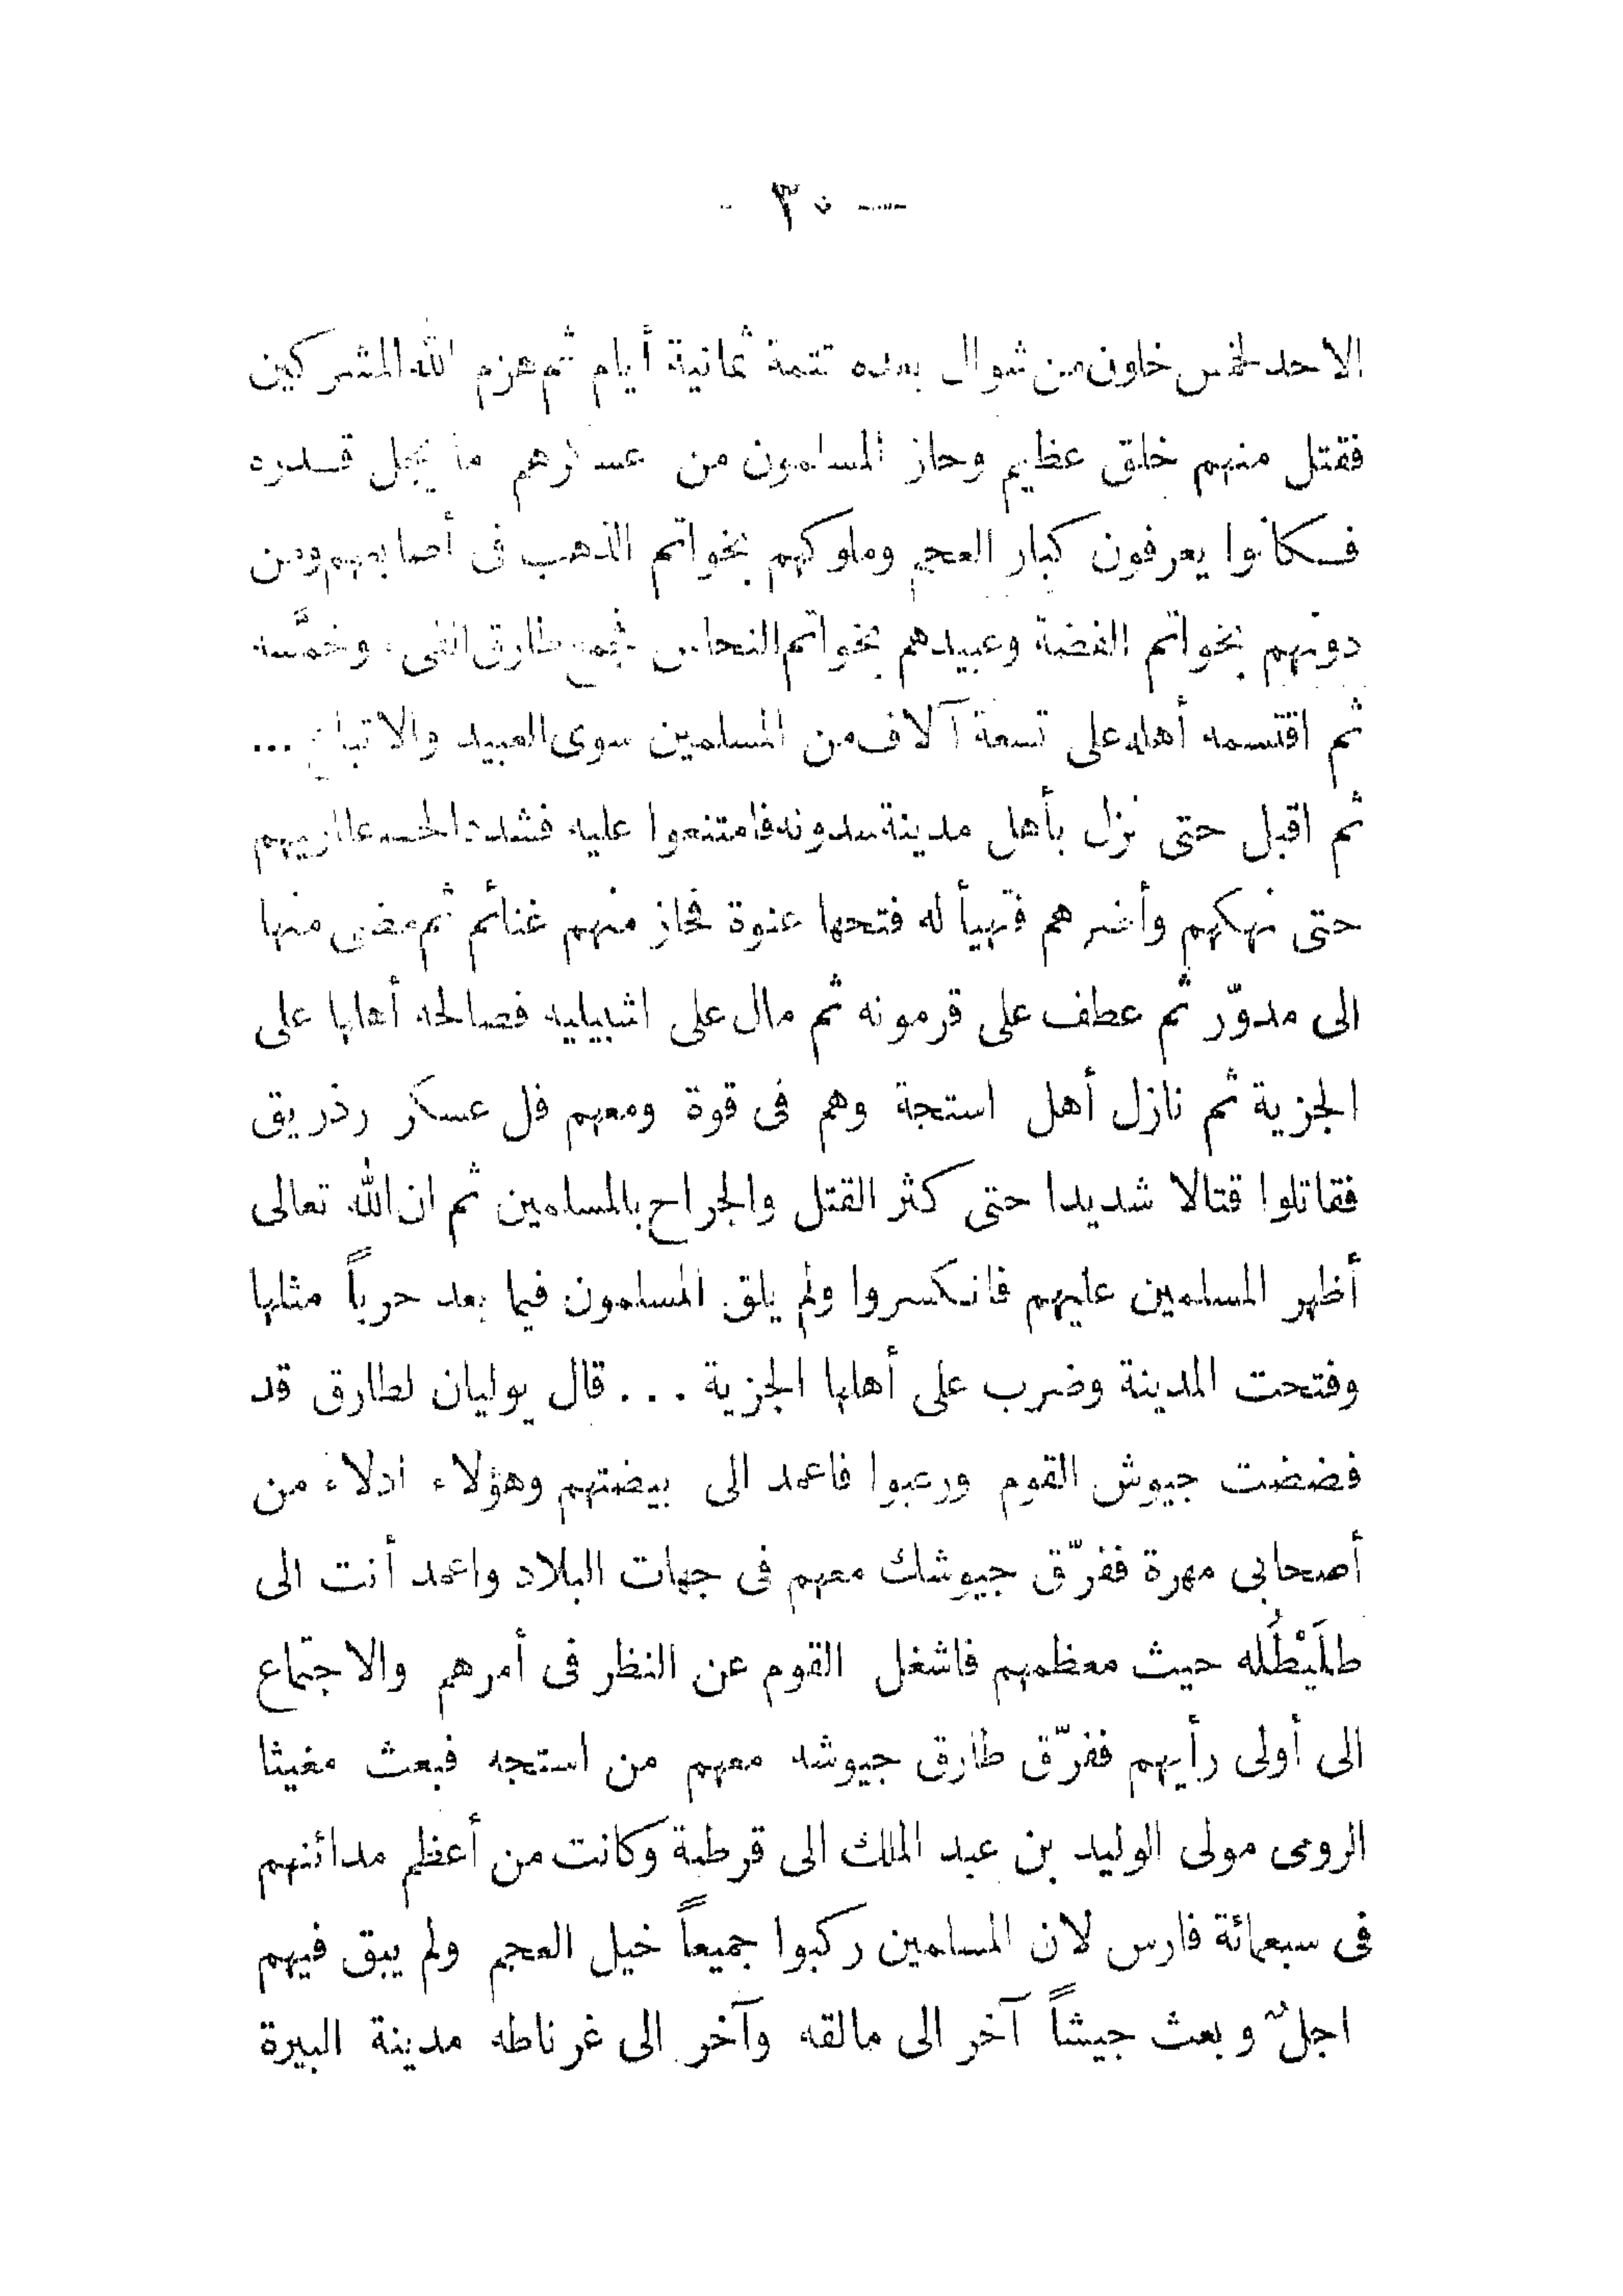 — ٣٠ -
الاحد لخمس خلون من شوال بعده تتمة ثمانية أيام ثم هزم الله المشركين
فقتل منهم خلق عظيم وحاز المسلمون من عسكرهم ما يجل قدره
فكانوا يعرفون كبار العجم وملوكهم بخواتم الذهب فى أصابعهم ومن
دونهم بخواتم الفضة وعبيدهم بخواتم النحاس فجمع طارق الفىء وخمَّسه
ثم اقتسمه أهله على تسعة آلاف من المسلمين سوى العبيد والاتباع ...
ثم اقبل حتى نزل بأهل مدينة سدونه فامتنعوا عليه فشدد الحصر عليهم
حتى نهكهم وأضرهم فتهيأ له فتحها عنوة فحاز منهم غنائم ثم مضى منها
الى مدوّر ثم عطف على قرمونه ثم مال على اشبيليه فصالحه أهلها على
الجزية ثم نازل أهل استجة وهم فى قوة ومعهم فل عسكر رذريق
فقاتلوا قتالا شديدا حتى كثر القتل والجراح بالمسلمين ثم ان الله تعالى
أظهر المسلمين عليهم فانكسروا ولم يلق المسلمون فيما بعد حرباً مثلها
وفتحت المدينة وضرب على أهلها الجزية ... قال يوليان لطارق قد
فضضت جيوش القوم ورعبوا فاعمد الى بيضتهم وهؤلاء ادلاء من
أصحابى مهرة ففرّق جيوشك معهم فى جهات البلاد واعمد أنت الى
طلَيْطُله حيث معظمهم فاشغل القوم عن النظر فى أمرهم والاجتماع
الى أولى رأيهم ففرّق طارق جيوشه معهم من استجه فبعث مغيثا
الرومى مولى الوليد بن عبد الملك الى قرطبة وكانت من أعظم مدائنهم
فى سبعمائة فارس لان المسلمين ركبوا جميعاً خيل العجم ولم يبق فيهم
اجلٌ وبعث جيشاً آخر الى مالقه وآخر الى غرناطه مدينة البيرة